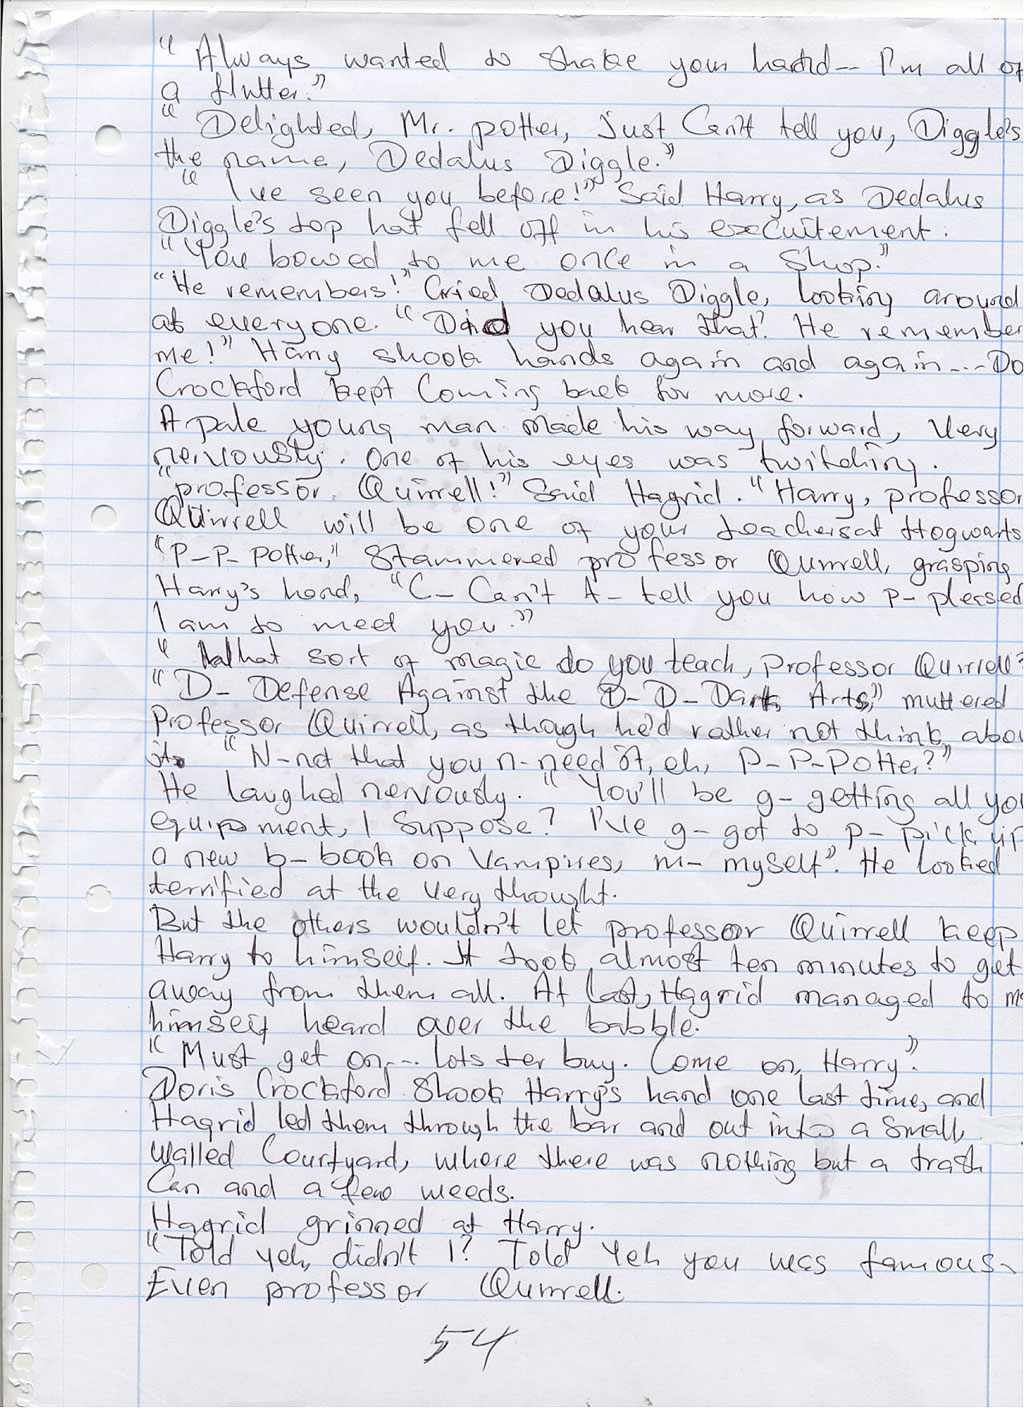 " Always wanted to shake your hand-- I'm all of
a flutter."
" Delighted, Mr. potter, Just Can't tell you, Diggle's
the name, Dedalus Diggle."
" I've seen you before!" Said Harry, as Dedalus
Diggle's top hat fell off in his excuitement.
"You bowed to me once in a Shop."
"He remembers!" Cried Dedalus Diggle, looking around
at everyone. "Did you hear that? He remember
me!" Harry shook hands again and again---Do
Crockford kept Coming back for more.
A pale young man made his way forward, Very
nervously. One of his eyes was twitching.
"professor Quirrell!" Said Hagrid. "Harry, professor
Quirrell will be one of your teachersat Hogwarts
"P-P-Potter," Stammered professor Quirrell, grasping
Harry's hand, "C- Can't A- tell you how p- pleased
I am to meet you."
" What sort of magic do you teach, Professor Quirrell?
"D- Defense Against the D-D-Dark Arts," muttered
Professor Quirrell, as though he'd rather not think abou
it. "N-not that you n-need it, eh, P-P-Potter?"
He laughed nervously. " You'll be g- getting all you
equipment, I Suppose? I've g- got to p- pick up
a new b- book on Vampires, m- myself". He looked
terrified at the very thought.
But the others wouldn't let professor Quirrell keep
Harry to himself. It took almost ten minutes to get
away from them all. At last, Hagrid managed to m
himself heard over the babble.
"Must get on--- lots ter buy. Come on, Harry."
Doris Crockford Shook Harry's hand one last time, and
Hagrid led them through the bar and out into a Small,
Walled Courtyard, where there was nothing but a trash
Can and a few weeds.
Hagrid grinned at Harry.
"Told yeh, didn't I? Told Yeh you was famous.
Even professor Quirrell.
54